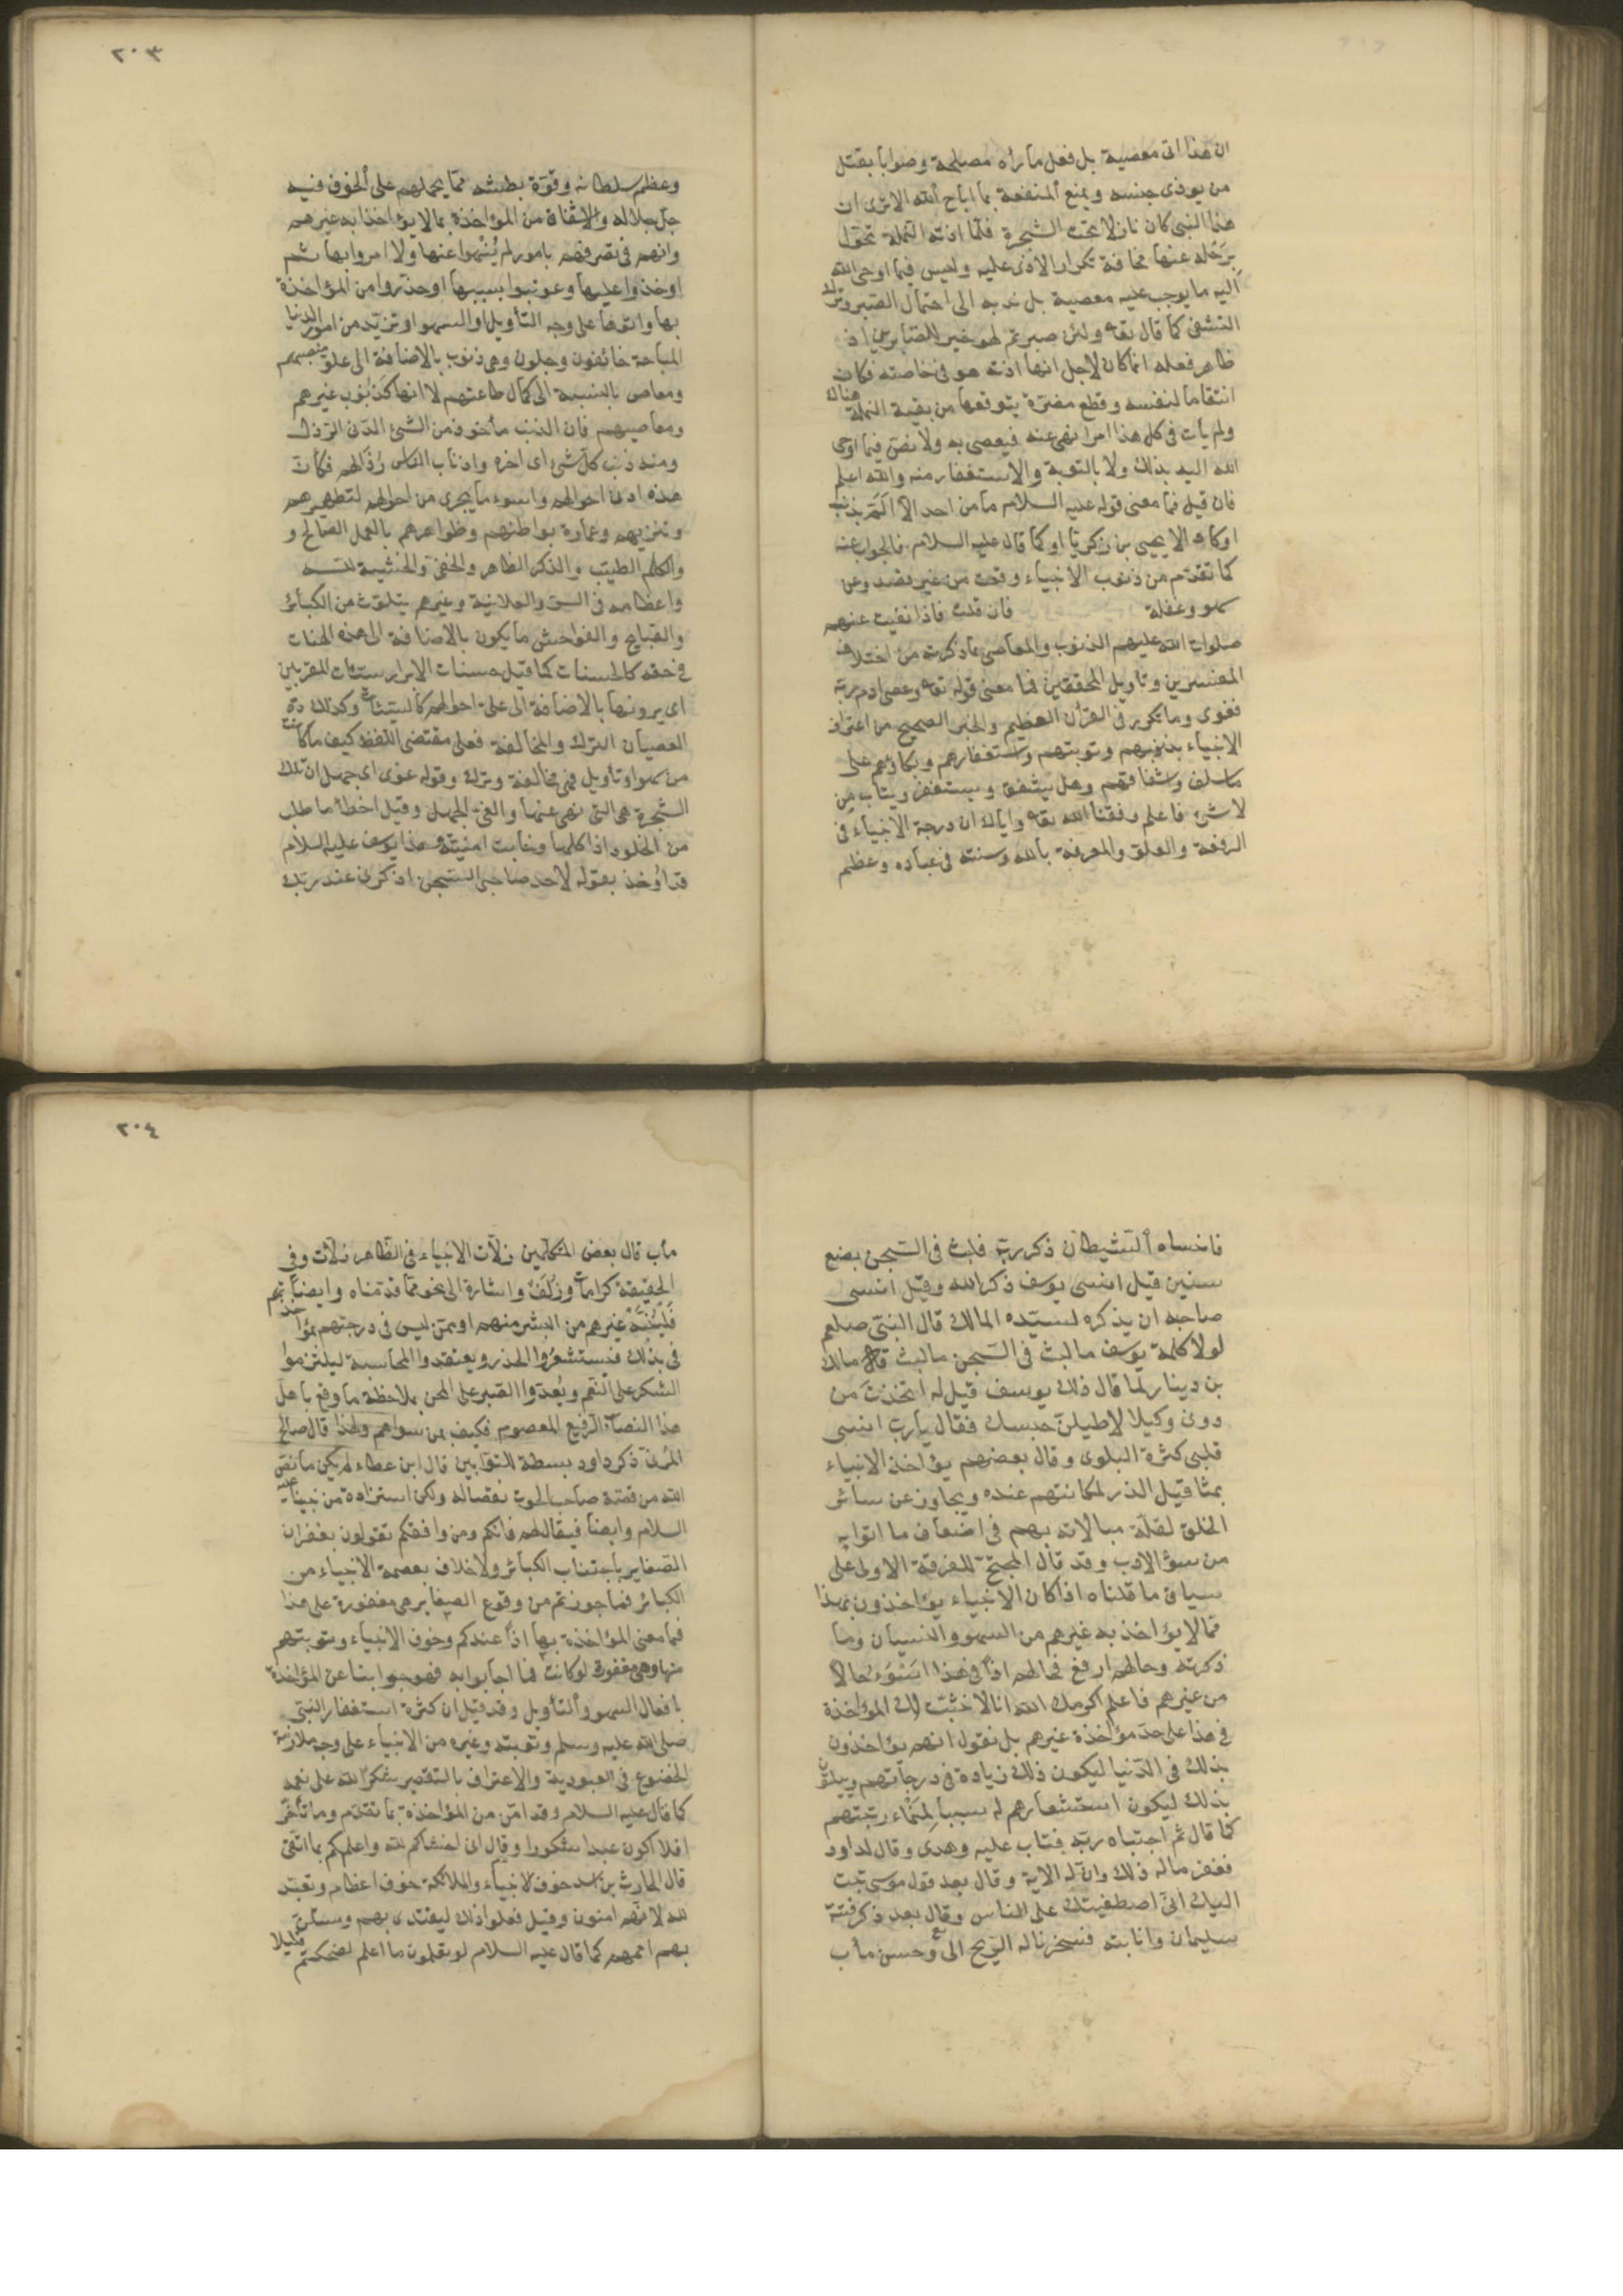 ان هذا اتى معصية بل فعل ما رأه مصلحة وصوابا بقتل
من يوذى جنسه ويمنع المنفعة بما اباح الله الا ترى ان
هذا النبى كان نازلا تحت الشجرة فلما اذته النملة تحول
برحله عنها مخافة تكرار الاذى عليه وليس فيما اوحى الله
اليه ما يوجب عليه معصية بل ندبه الى احتمال الصبر وترك
التشفى كما قال تعه ولئن صبرتم لهو خير للصابرين اذ
ظاهر فعله انما كان لاجل انها اذته هو فى خاصته فكان
انتقاما لنفسه وقطع مضرة يتوقعها من بقية النملة هناك
ولم يأت فى كل هذا امرا نهى عنه فيعصى به ولا نص فيما اوحى
الله اليه بذلك ولا بالتوبة والاستغفار منه والله اعلم
فان قيل فما معنى قوله عليه السلام ما من احد الا الم بذنب
او كاد الا يحيى بن زكريا او كما قال عليه السلام فالجواب عنه
كما تقدم من ذنوب الانبياء وقعت من غير قصد وعن
سهو وغفلة فان قلت فاذا نفيت عنهم
صلوات الله عليهم الذنوب والمعاصى بما ذكرته من اختلاف
المفسرين وتأويل المحققين فما معنى قوله تعه وعصى ادم ربه
فغوى وما تكرر فى القرأن العظيم والخبر الصحيح من اعتراف
الانبياء بذنوبهم وتوبتهم واستغفارهم وبكاؤهم على
ما سلف واشفاقهم وهل يشفق ويستغفر ويتاب من
لا شئ فاعلم وفقنا الله تعه واياك ان درجة الانبياء فى
الرفعة والعلو والمعرفة بالله وسنته فى عباده وعظم
٢٠٣
وعظم سلطانه وقوة بطشه مما يحملهم على الخوف فيه
جل جلاله والاشفاق من المؤاخذة بما لا يؤاخذ به غيرهم
وانهم فى تصرفهم بامور لم ينهوا عنها ولا امروا بها ثم
اوخذوا عليها وعوتبوا بسببها او حذروا من المؤاخذة
بها واتوها على وجه التأويل او السهو او تزيد من امور الدنيا
المباحة خائفون وجلون وهى ذنوب بالاضافة الى على منصبهم
ومعاص بالنسبة الى كمال طاعتهم لا انها كذنوب غيرهم
ومعاصيهم فان الذنب مأخوذ من الشئ الدنى الرذل
ومنه ذنب كل شئ اى اخره واذناب الناس رذالهم فكأن
هذه ادنى احوالهم واسوء ما يجرى من احوالهم لتطهيرهم
وتنزيههم وعمارة بواطنهم وظواهرهم بالعمل الصالح و
والكلم الطيب والذكر الظاهر والخفى والخشية لله
واعظامه فى السر والعلانية وغيرهم يتلوث من الكبائر
والقبايح والفواحش ما يكون بالاضافة الى هذه الهنات
فى حقه كالحسنات كما قيل حسنات الابرار سيئات المقربين
اى يرونها بالاضافة الى على احوالهم كالسيئات وكذلك
العصيان الترك والمخالفة فعلى مقتضى اللفظ كيف ما كانت
من سهو او تأويل فهى مخالفة وترك وقوله غوى اى جهل ان تلك
الشجرة هى التى نهى عنها والغى الجهل وقيل اخطأ ما طلب
من الخلود اذ اكلها وخابت امنيته وهذا يوسف عليه السلام
قد اوخذ بقوله لاحد صاحبى السجن اذكرنى عند ربك
فانساه الشيطان ذكر ربه فلبث فى السجن بضع
سنين قيل انسى يوسف ذكر الله وقيل انسى
صاحبه ان يذكره لسيده المالك قال النبى صلعم
لولا كلمة يوسف ما لبث فى السجن ما لبث قال مالك
بن دينار لما قال ذلك يوسف قيل له اتخذت من
دونى وكيلا لاطيلن حبسك فقال يارب انسى
قلبى كثرة البلوى وقال بعضهم يؤاخذ الانبياء
بمثاقيل الذر لمكانتهم عنده ويجاوز عن سائر
الخلق لقلة مبالاته بهم فى اضعاف ما اتوا به
من سوء الادب وقد قال المحتج للفرقة الاولى على
سياق ما قلناه اذا كان الانبياء يؤاخذون بهذا
مما لا يؤاخذ به غيرهم من السهو والنسيان وما
ذكرته وحالهم ارفع فحالهم اذا فى هذا اسوء حالا
من غيرهم فاعلم اكرمك الله انا لا نثبت لك المؤاخذة
فى هذا على حد مؤاخذة غيرهم بل نقول انهم يؤاخذون
بذلك فى الدنيا ليكون ذلك زيادة فى درجاتهم ويبتلون
بذلك ليكون استشعارهم له سببا لمنماء رتبتهم
كما قال ثم اجتباه ربه فتاب عليه وهدى وقال لداود
فغفرنا له ذلك وان له الاية وقال بعد قول موسى تبت
اليك انى اصطفيتك على الناس وقال بعد ذكر فتنة
سليمان وانابته فسخرنا له الريح الى وحسن مأب
٢٠٤
مأب قال بعض المتكلمين زلات الانبياء فى الظاهر زلات وفى
الحقيقة كرامات وزلف واشارة الى نحو مما قدمناه وايضا
فلينبه غيرهم من البشر منهم او ممن ليس فى درجتهم بمؤاخذتهم
فى بذلك فيستشعروا الحذر ويعتقدوا المحاسبة ليلتزموا
الشكر على النعم ويعدوا الصبر على المحن بملاحظة ما وقع باهل
هذا النصاب الرفيع المعصوم فكيف بمن سواهم ولهذا قال صالح
المرى ذكر داود بسطة للتوابين قال ابن عطاء لم يكن ما نص
الله من قصة صاحب الحوت نقصا له ولكن استزادة من نبينا عليه
السلام وايضا فيقال لهم فانكم ومن وافقكم تقولون بغفران
الصغاير باجتناب الكبائر ولا خلاف بعصمة الانبياء من
الكبائر فما جوزتم من وقوع الصغاير هى مغفورة على هذا
فما معنى المؤاخذة بها اذا عندكم وخوف الانبياء وتوبتهم
منها وهى مغفورة لو كانت فما اجابوا به فهو جوابنا عن المؤاخذة
بافعال السهو والتأويل وقد قيل ان كثرة استغفار النبى
صلى الله عليه وسلم وتوبته وغيره من الانبياء على وجه ملازمة
الخضوع فى العبودية والاعتراف بالتقصير شكرا لله على نعمه
كما قال عليه السلام وقد امن من المؤاخذة بما تقدم وما تأخر
افلا اكون عبدا شكورا وقال انى اخشاكم لله واعلمكم بما اتقى
قال الحارث بن اسد خوف الانبياء والملائكة خوف اعظام وتعبد
لله لانهم امنون وقيل فعلوا ذلك ليقتدى بهم وتستن
بهم اممهم كما قال عليه السلام لو تعلمون ما اعلم لضحكتم قليلا